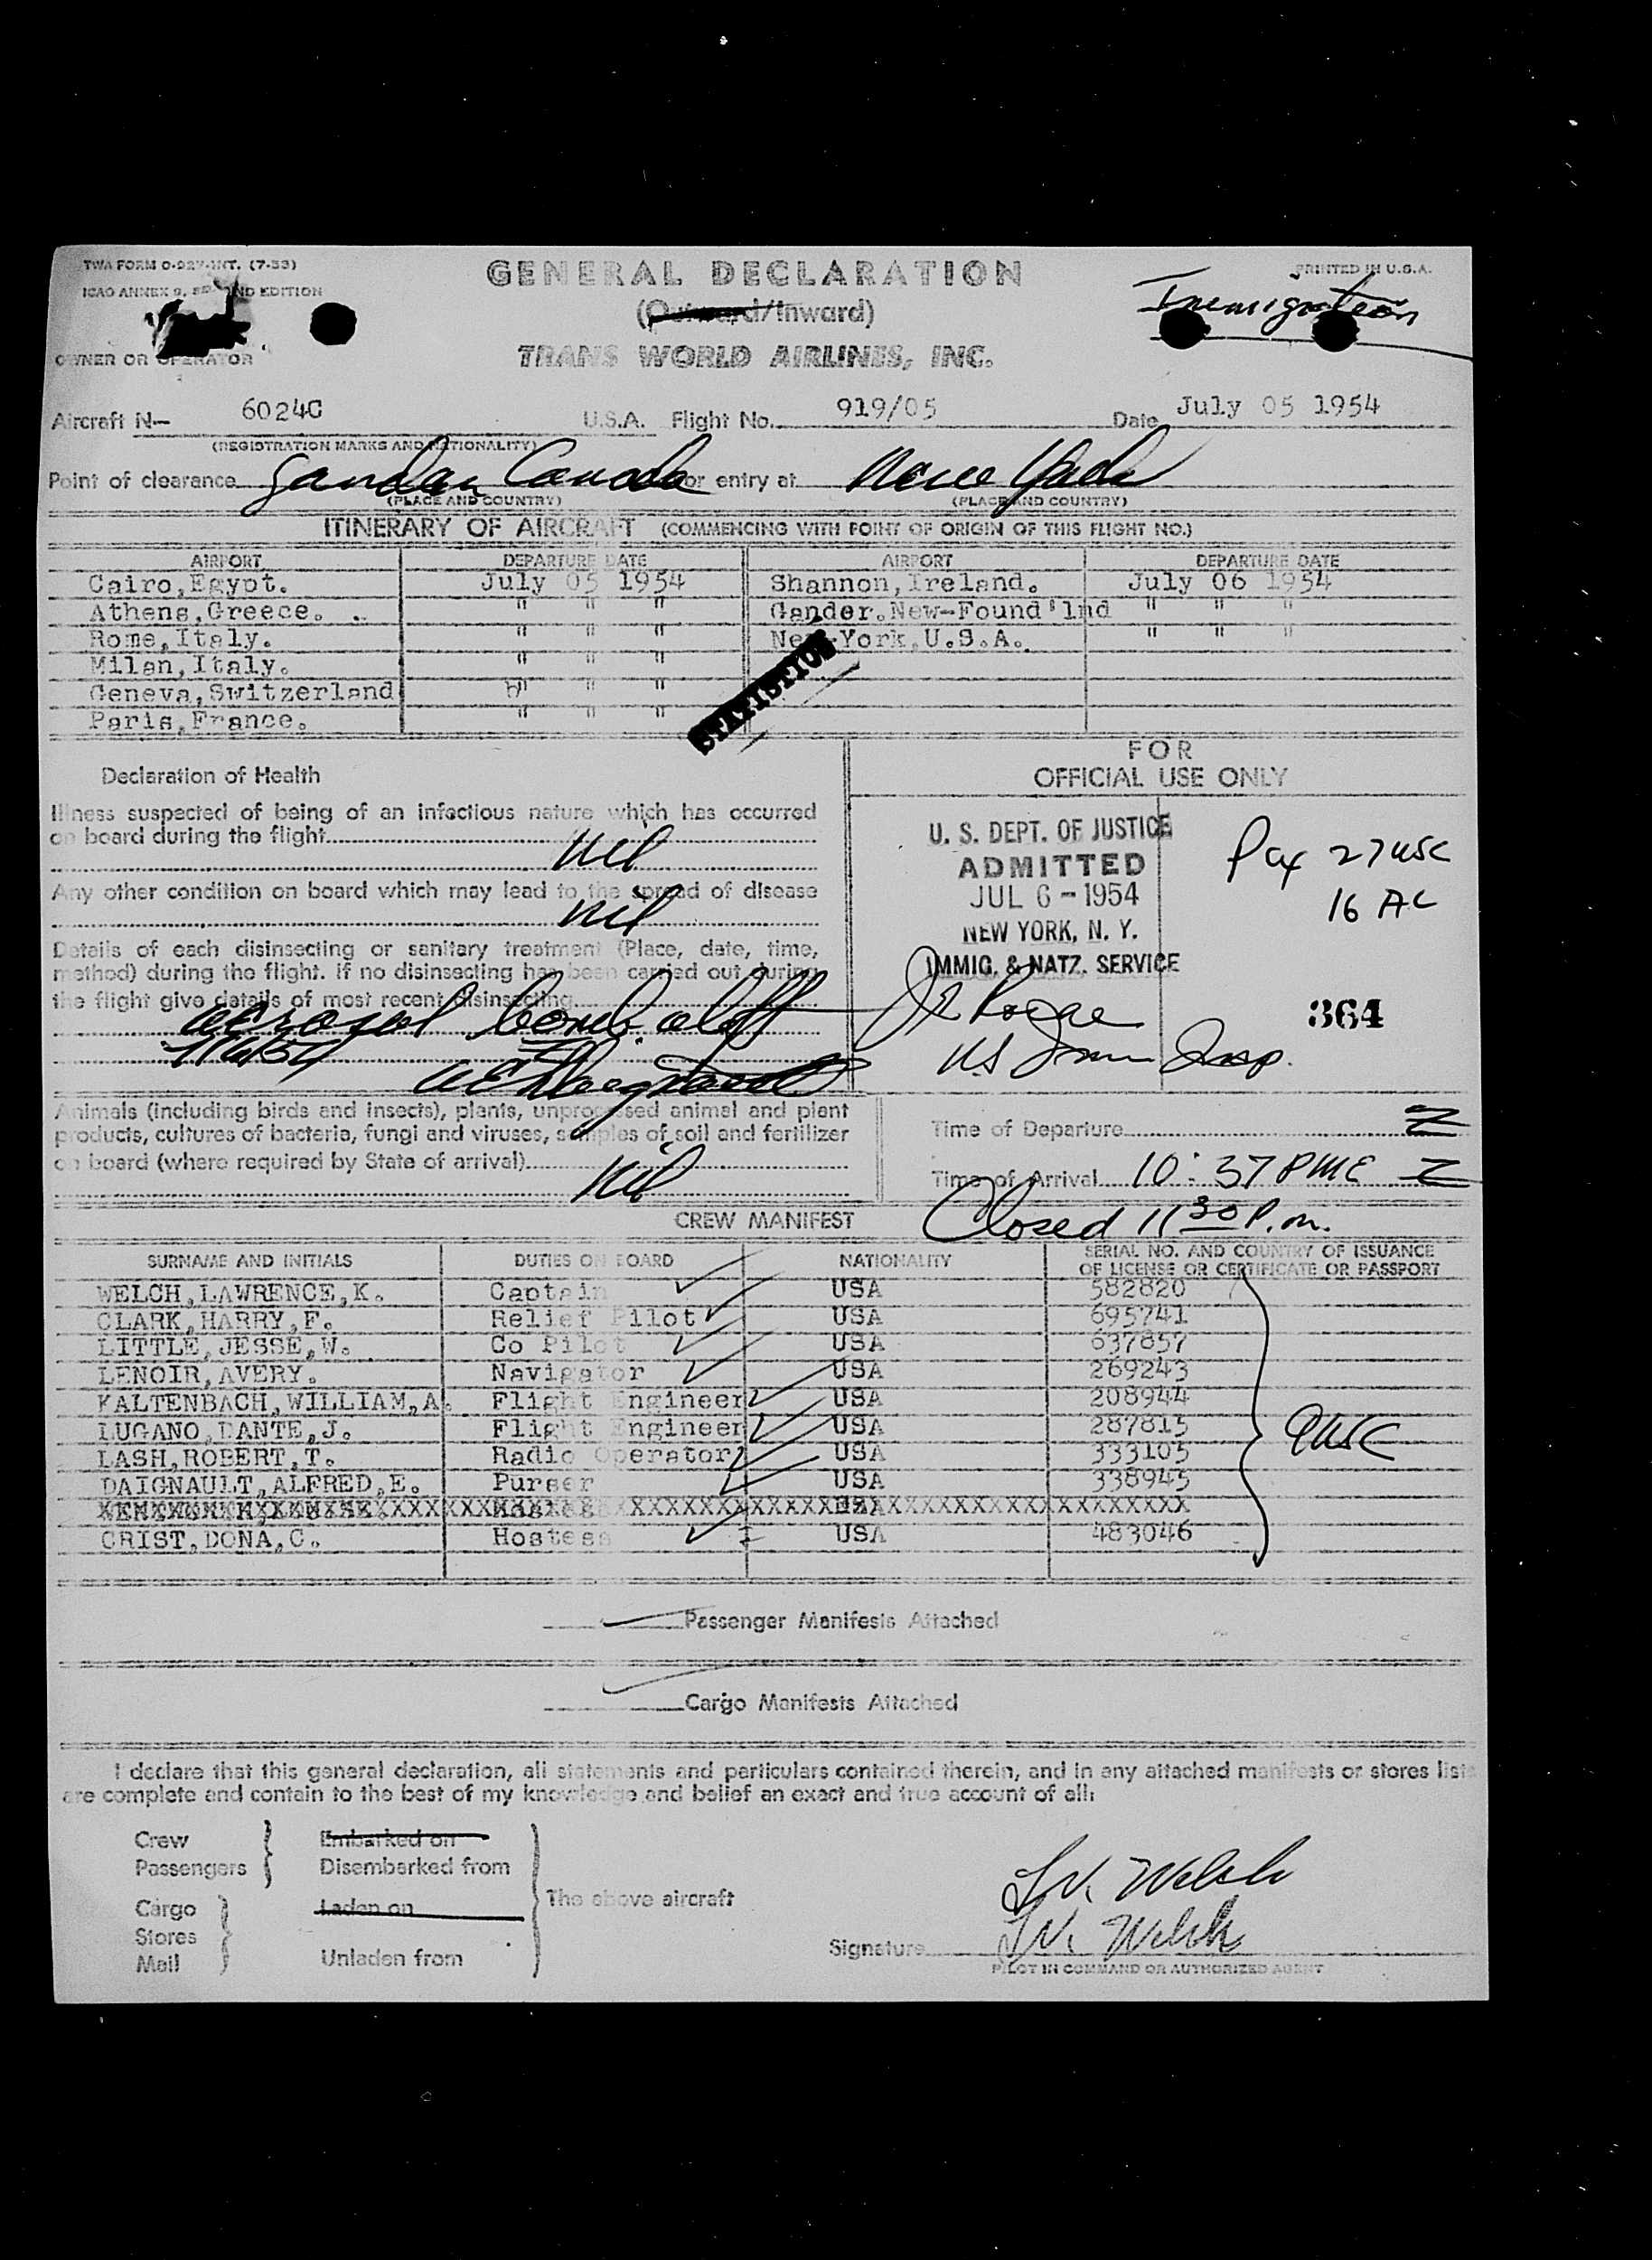 TWA FORM O-927-INT. (7-53)
GENERAL DECLARATION
PRINTED IN U.S.A.
ICAO ANNEX 9, 2ND EDITION
(Outward/Inward)
Immigration
OWNER OR OPERATOR
TRANS WORLD AIRLINES, INC.
Aircraft N— 6024C U.S.A. Flight No. 919/05 Date July 05 1954
(REGISTRATION MARKS AND NATIONALITY)
Point of clearance Gander Canada For entry at New York
(PLACE AND COUNTRY) (PLACE AND COUNTRY)
ITINERARY OF AIRCRAFT (COMMENCING WITH POINT OF ORIGIN OF THIS FLIGHT NO.)
AIRPORT DEPARTURE DATE AIRPORT DEPARTURE DATE
Cairo,Egypt. July 05 1954 Shannon,Ireland. July 06 1954
Athens,Greece. " " " Gander.New-Found'lnd " " "
Rome,Italy. " " " New-York,U.S.A. " " "
Milan,Italy. " " "
Geneva,Switzerland " " "
Paris,France. " " "
STATISTICS
Declaration of Health
Illness suspected of being of an infectious nature which has occurred
on board during the flight nil
Any other condition on board which may lead to the spread of disease
nil
Details of each disinsecting or sanitary treatment (Place, date, time,
method) during the flight. If no disinsecting has been carried out during
the flight give details of most recent disinsecting
aerosol bomb aloft
7/6/54
FOR
OFFICIAL USE ONLY
U. S. DEPT. OF JUSTICE
ADMITTED
JUL 6 - 1954
NEW YORK, N. Y.
IMMIG. & NATZ. SERVICE
Pax 27 USC
16 AC
364
US Imm Insp.
Animals (including birds and insects), plants, unprocessed animal and plant
products, cultures of bacteria, fungi and viruses, samples of soil and fertilizer
on board (where required by State of arrival) nil
Time of Departure Z
Time of Arrival 10:37 PME Z
Closed 11 30 P.m.
CREW MANIFEST
SURNAME AND INITIALS DUTIES ON BOARD NATIONALITY SERIAL NO. AND COUNTRY OF ISSUANCE
OF LICENSE OR CERTIFICATE OR PASSPORT
WELCH,LAWRENCE,K. Captain USA 582820
CLARK,HARRY,F. Relief Pilot USA 695741
LITTLE,JESSE,W. Co Pilot USA 637857
LENOIR,AVERY. Navigator USA 269243
KALTENBACH,WILLIAM,A. Flight Engineer USA 208944
LUGANO,DANTE,J. Flight Engineer USA 287815
LASH,ROBERT,T. Radio Operator USA 333105
DAIGNAULT,ALFRED,E. Purser USA 338945
CRIST,DONA,C. Hostess USA 483046
9USC
Passenger Manifests Attached
Cargo Manifests Attached
I declare that this general declaration, all statements and particulars contained therein, and in any attached manifests or stores lists
are complete and contain to the best of my knowledge and belief an exact and true account of all:
Crew
Passengers
Embarked on
Disembarked from
Cargo
Stores
Mail
Laden on
Unladen from
The above aircraft
L.K. Welch
L.K. Welch
Signature
PILOT IN COMMAND OR AUTHORIZED AGENT